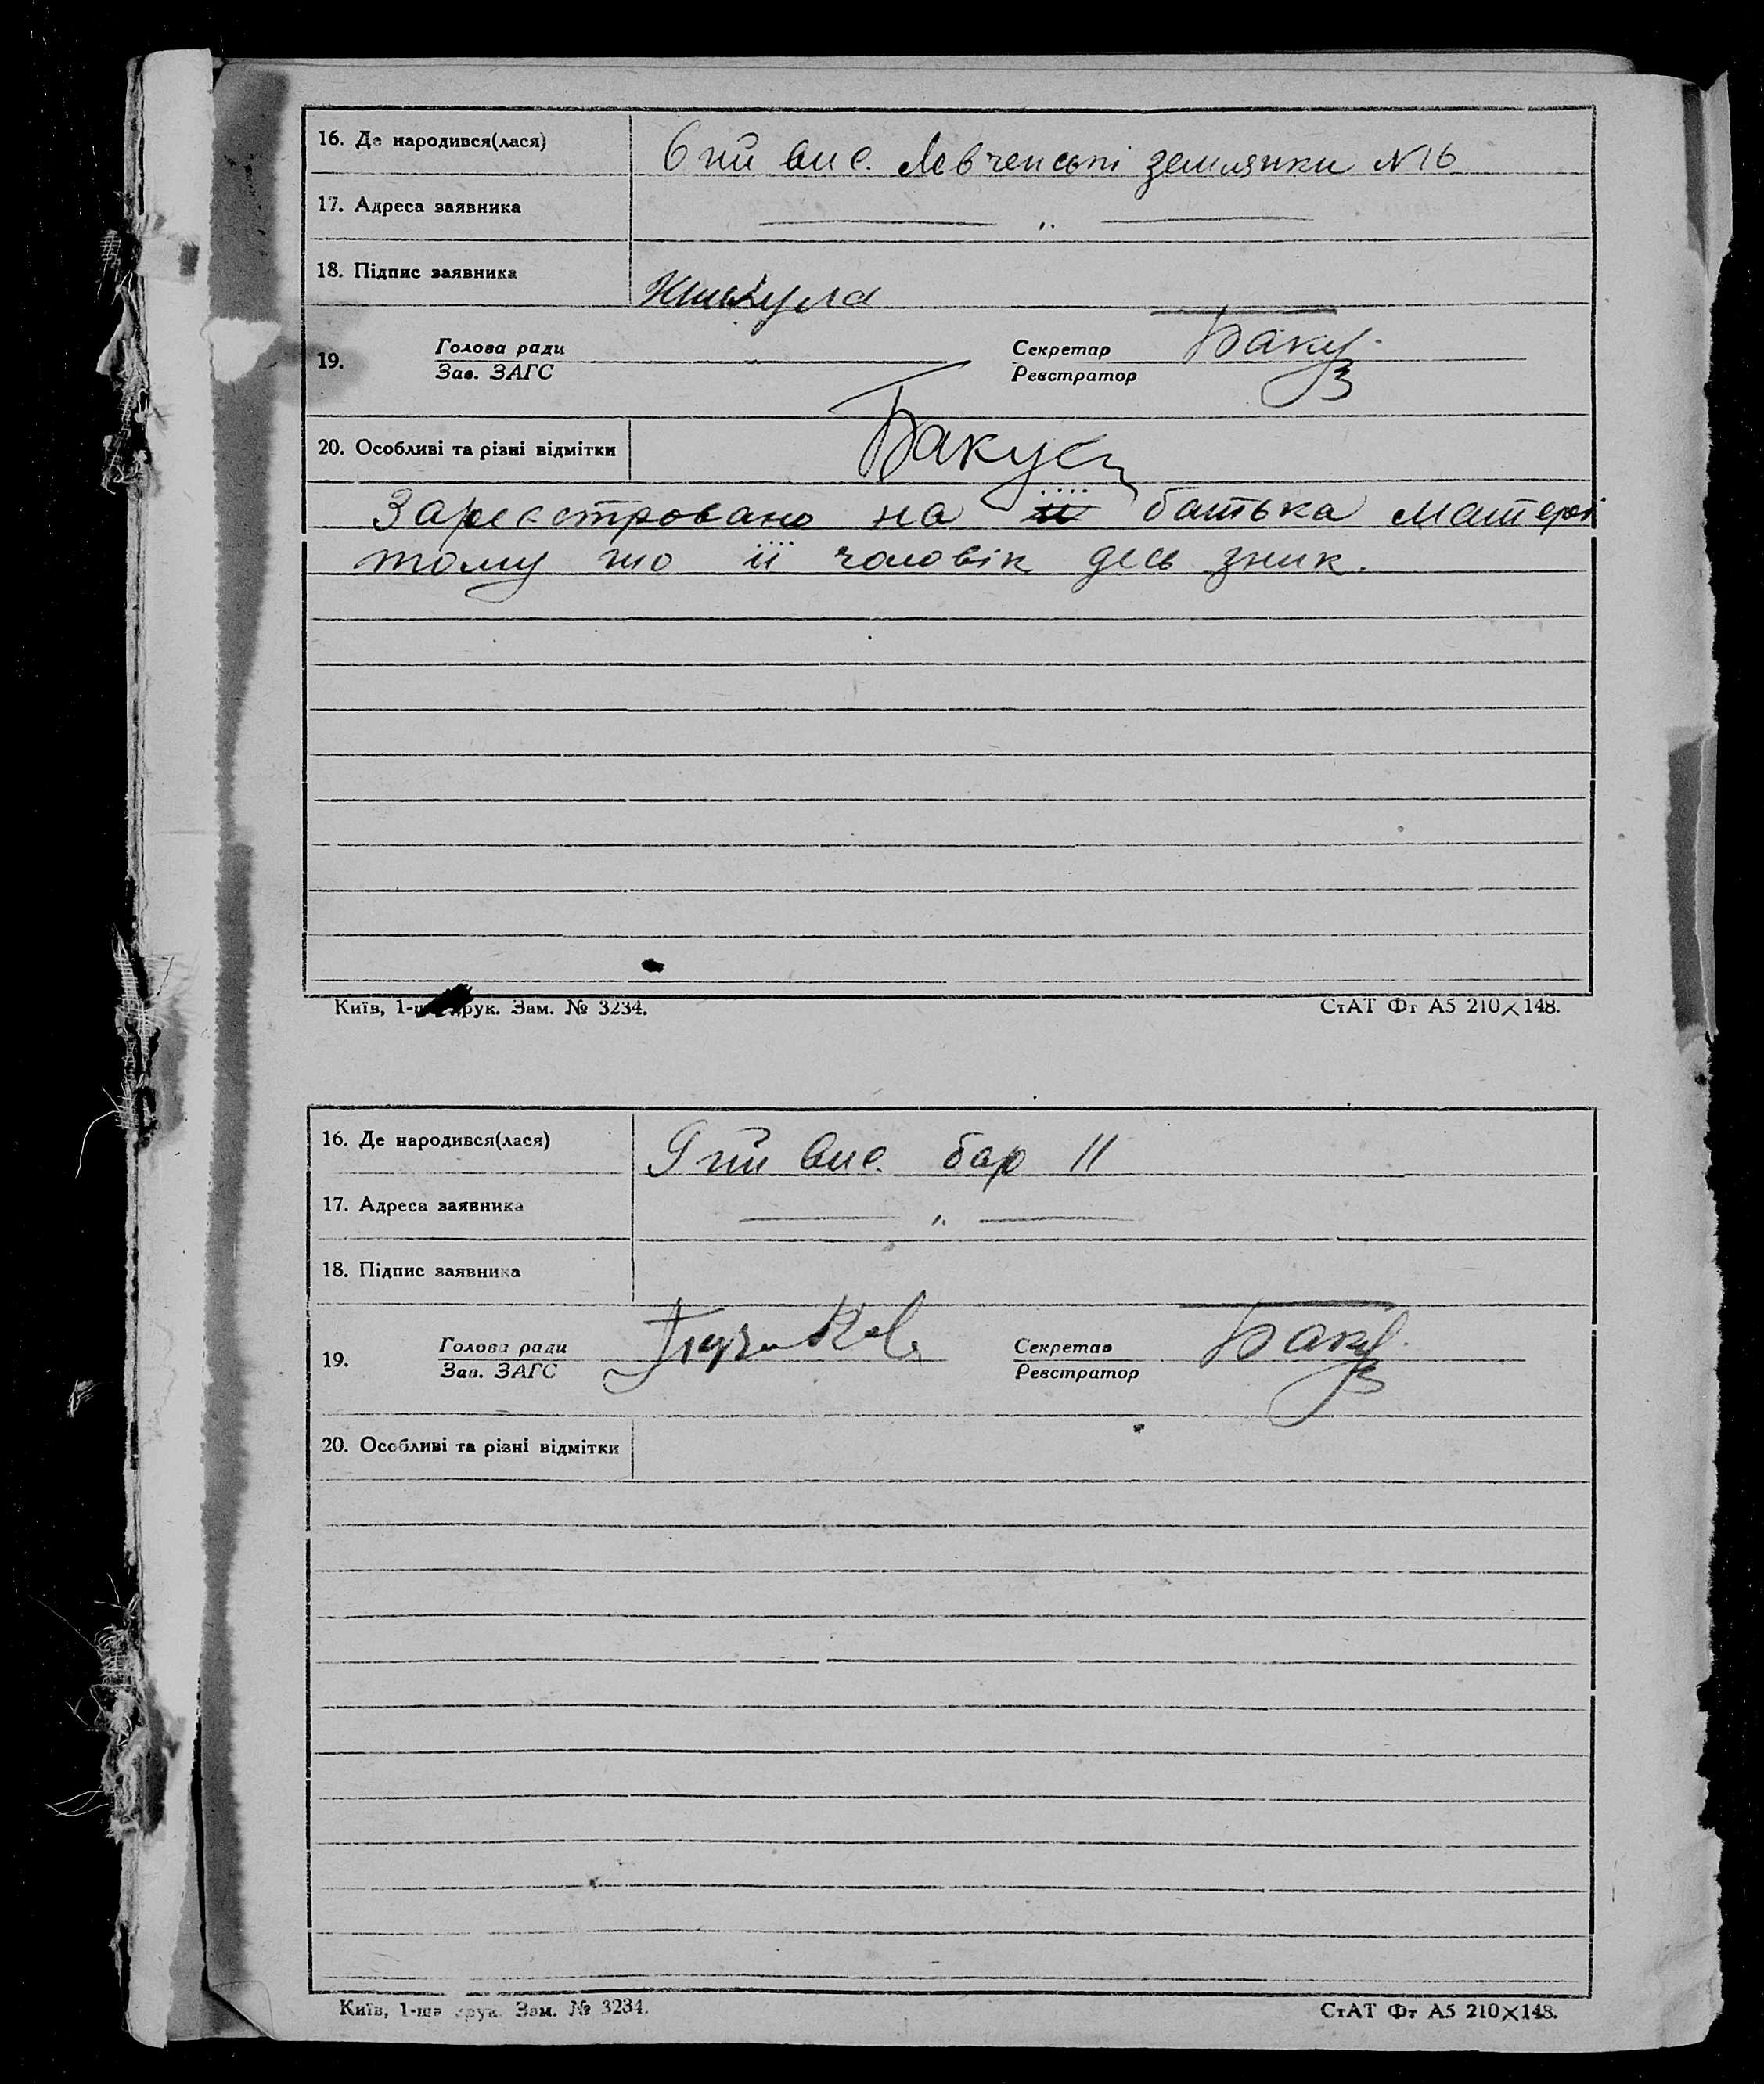 16. Де народився(лася) 6 ий вис. Левченські землянки №16
17. Адреса заявника — „ —
18. Підпис заявника
19. Голова ради Секретар Баку
Зав. ЗАГС Реєстратор
Бакуєв
20. Особливі та різні відмітки
Зареєстровано на її батька матері
тому що її чоловік десь зник.
Київ, 1-ша друк. Зам. № 3234. СтАТ Фт А5 210×148.
16. Де народився(лася) 9 ий вис. бар 11
17. Адреса заявника — „ —
18. Підпис заявника
19. Голова ради Секретар Баку
Зав. ЗАГС Реєстратор
20. Особливі та різні відмітки
Київ, 1-ша друк. Зам. № 3234. СтАТ Фт А5 210×148.